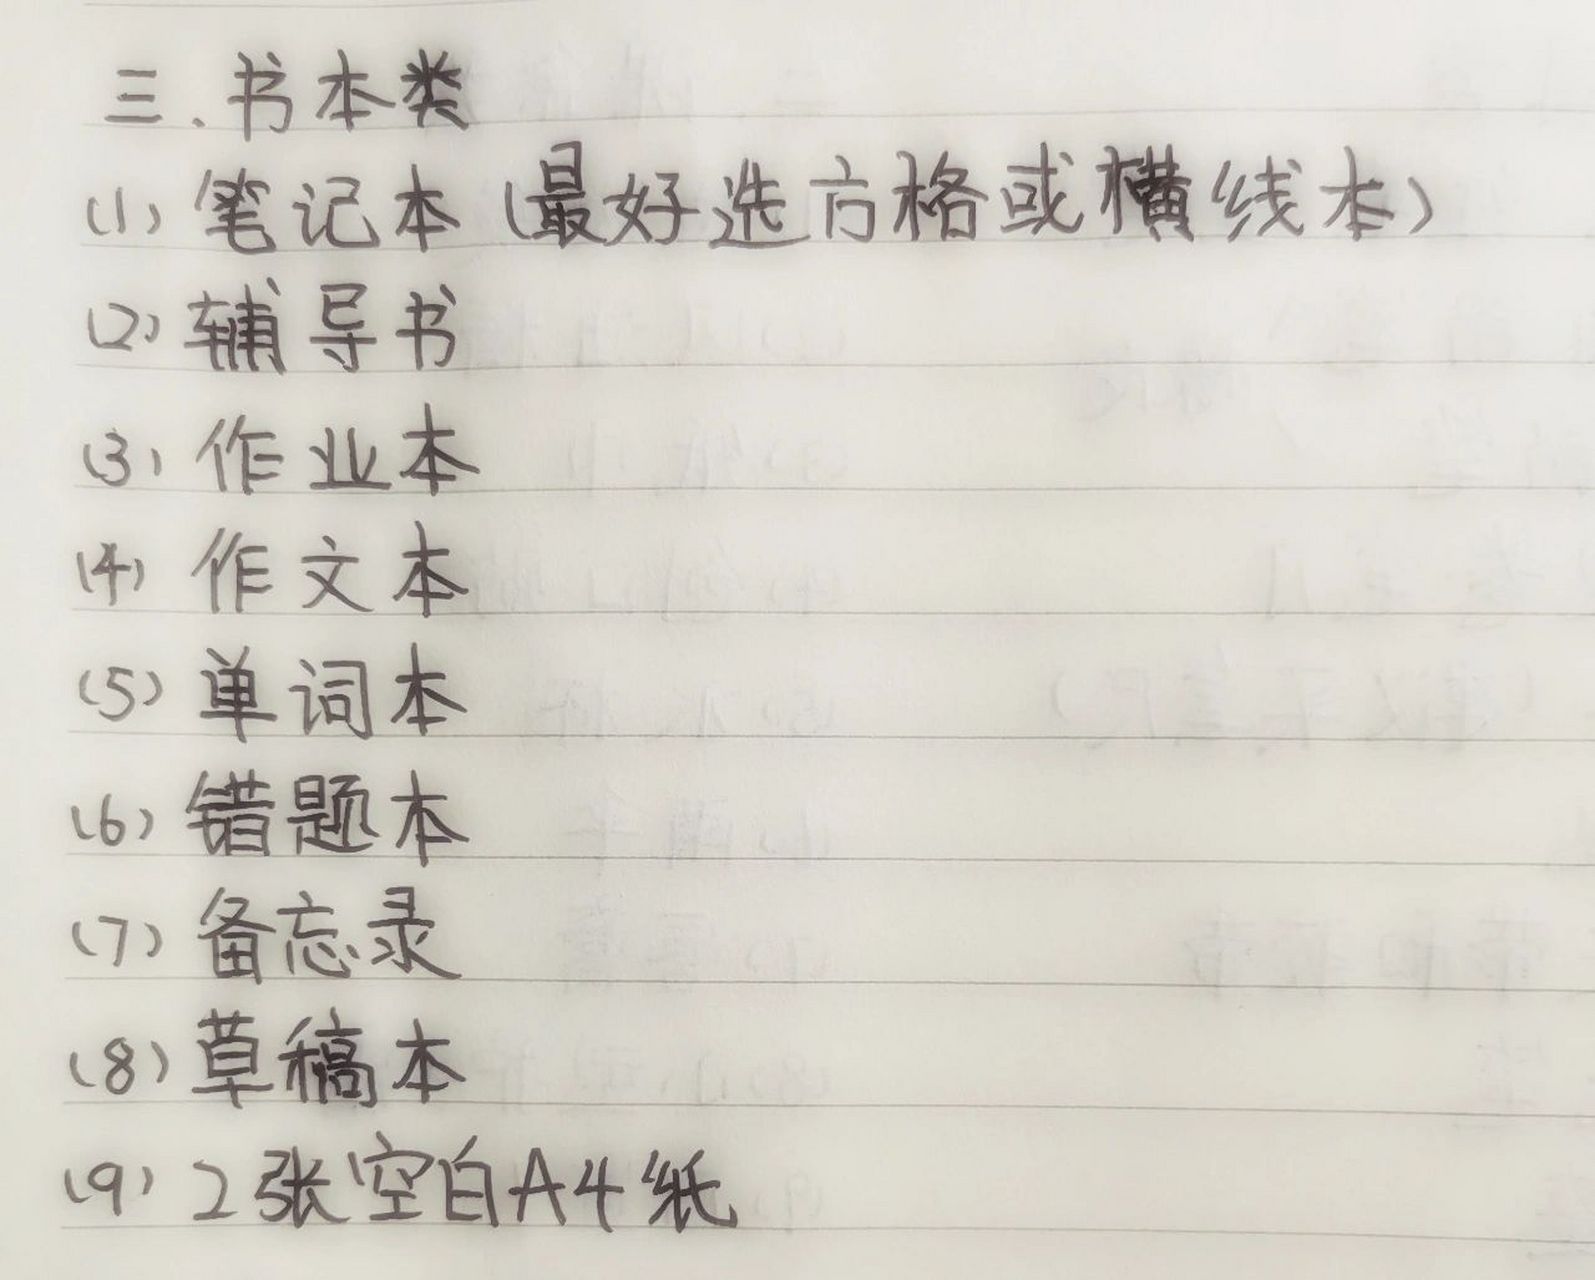 三.书本类
(1) 笔记本 (最好选方格或横线本)
(2) 辅导书
(3) 作业本
(4) 作文本
(5) 单词本
(6) 错题本
(7) 备忘录
(8) 草稿本
(9) 2张空白A4纸